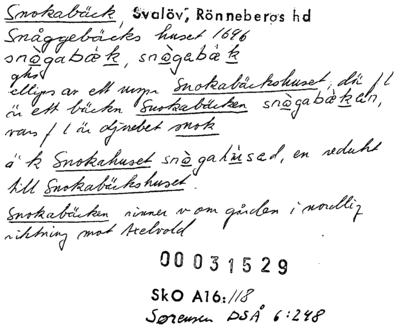 Snokabäck, Svalöv, Rönnebergs hd
Snåggebäcks huset 1696
snògabǽk, snògabæk
ellips av ett urspr Snokabäckshuset, där f l
är ett bäckn Snokabäcken snògabǽkan,
vars f l är djurebet snok
å k Snokahuset snògahúsad, en redukt
till Snokabäckshuset.
Snokabäcken rinner v om gården i nordlig
riktning mot Axelvold
00031529
SkO A16:118
Sørensen DSÅ 6:248